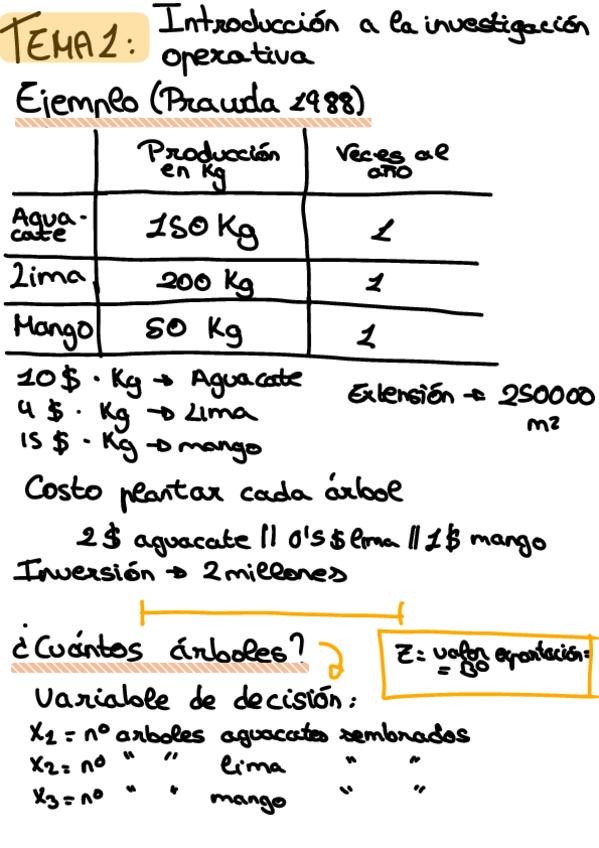 TEMA 1: Introducción a la investigación
operativa
Ejemplo (Prawda 1988)
Producción en Kg Veces al año
Agua-cate 150 Kg 1
Lima 200 Kg 1
Mango 50 Kg 1
10 $ · Kg → Aguacate
4 $ · Kg → Lima
15 $ · Kg → mango
Extensión → 250000 m²
Costo plantar cada árbol
2 $ aguacate || 0's $ lima || 1 $ mango
Inversión → 2 millones
¿Cuántos árboles?
Z = valor exportación =
= Bº
Variable de decisión:
X1 = nº arboles aguacates sembrados
X2 = nº " " lima " "
X3 = nº " " mango " "